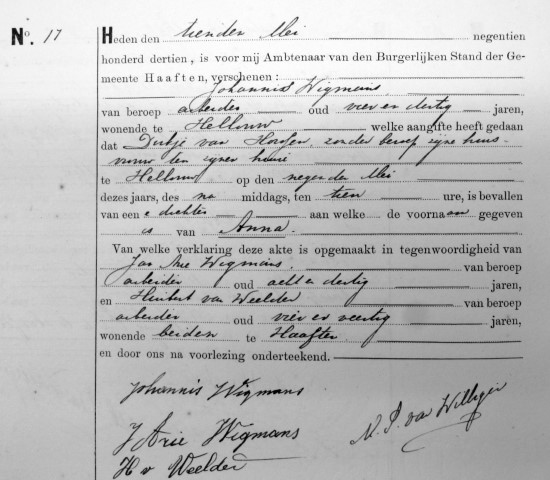 No. 17
Heden den tienden Mei negentien
honderd dertien, is voor mij Ambtenaar van den Burgerlijken Stand der Ge-
meente Haaften, verschenen:
Johannis Wigmans
van beroep arbeider oud vier en dertig jaren,
wonende te Hellouw welke aangifte heeft gedaan
dat Dirkje van zonder beroep zijne huis-
vrouw ten zijnen huize
te Hellouw op den negenden Mei
dezes jaars, des na middags, ten tien ure, is bevallen
van een e dochter aan welke de voornaam gegeven
is van Anna.
Van welke verklaring deze akte is opgemaakt in tegenwoordigheid van
Jan Arie Wigmans. van beroep
arbeider oud acht en dertig jaren,
en Huibert van Weelder van beroep
arbeider oud vier en veertig jaren,
wonende beiden te Haaften
en door ons na voorlezing onderteekend.
Johannis Wigmans
J Arie Wigmans
H v Weelder